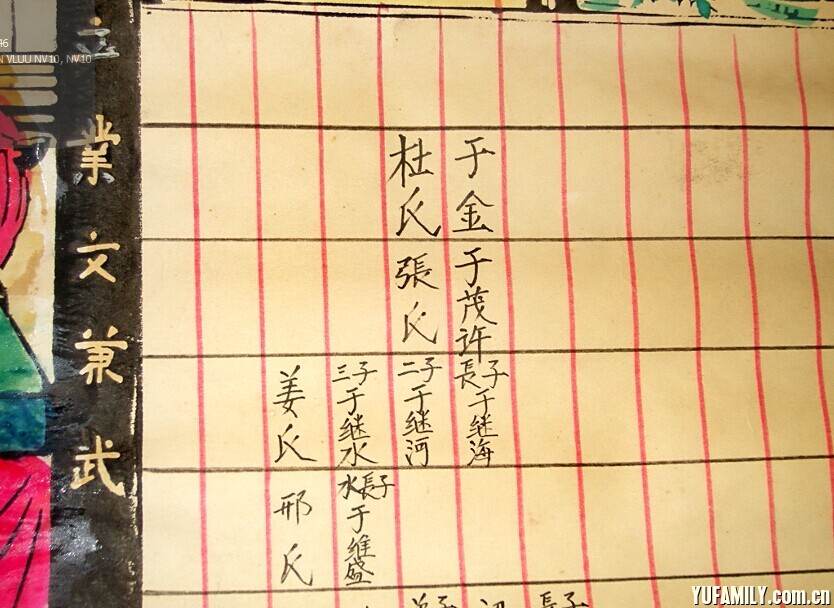 立業文兼武
于金
杜氏
于茂許
張氏
長子于继海
二子于继河
三子于继水
姜氏
水長子于维盛
邢氏
長子
YUFAMILY.com.cn